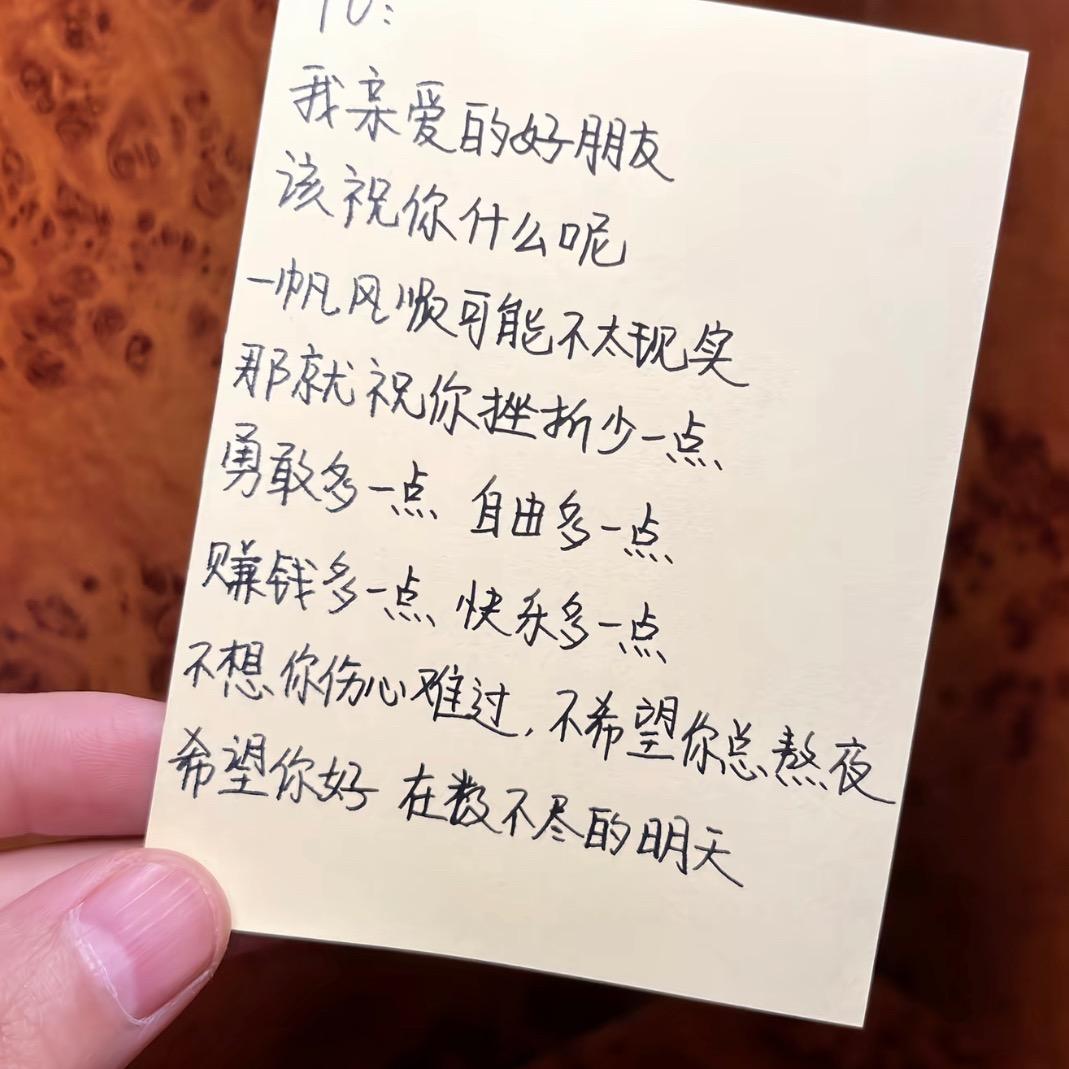 TO:
我亲爱的好朋友
该祝你什么呢
一帆风顺可能不太现实
那就祝你挫折少一点
勇敢多一点 自由多一点
赚钱多一点 快乐多一点
不想你伤心难过，不希望你总熬夜
希望你好 在数不尽的明天